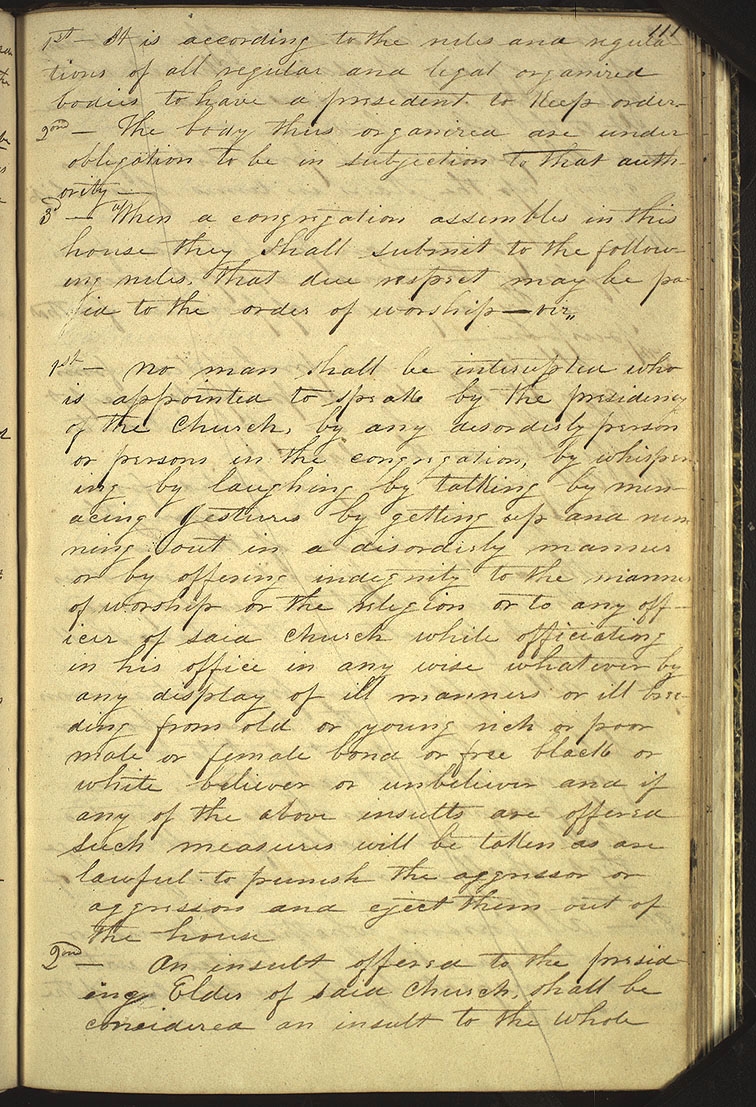 111
1st— It is according to the rules and regula-
tions of all regular and legal organized
bodies to have a president to keep order—
2ond— The body thus organized are under
obligation to be in subjection to that auth-
ority—
3d— When a congregation assembles in this
house they shall submit to the follow-
ing rules, that due respect may be pa-
id to the order of worship—viz„
1st— no man shall be interupted who
is appointed to speak by the presidency
of the Church, by any disorderly person
or persons in the congregation, by whisper-
ing by laughing by talking by men-
acing Jestures by getting up and run
ning out in a disorderly manner
or by offering indignity to the manner
of worship or the religion or to any off-
icer of said church while officiating
in his office in any wise whatever by
any display of ill manners or ill bree-
ding from old or young rich or poor
male or female bond or free black or
white believer or unbeliever and if
any of the above insults are offered
such measures will be taken as are
lawful to punish the aggressor or
aggressors and eject them out of
the house
2ond— An insult offered to the presid-
ing Elder of said Church, shall be
considered an insult to the whole